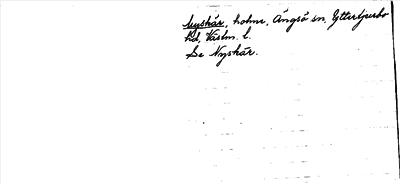 Nyskär, holme, Ängsö sn, Yttertjurbo
hd, Västm. l.
Se Nyskär.